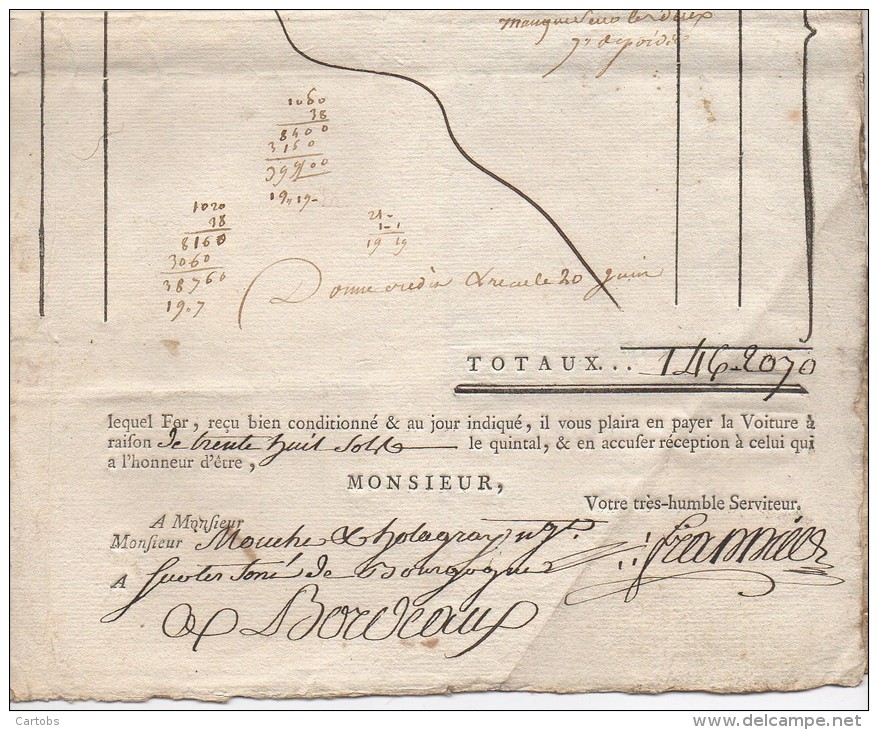 manque
1050
38
8400
3150
39900
19,, 19-
1020
38
8160
3060
38760
19. 7
21-
1-1
19 19
Donné credit le 20 Juin
TOTAUX... 146-2070
lequel Fer, reçu bien conditionné & au jour indiqué, il vous plaira en payer la Voiture à
raison de trente huit sols le quintal, & en accuser réception à celui qui
a l'honneur d'être,
MONSIEUR,
Votre très-humble Serviteur.
A Monsieur
Monsieur Mouche &
A de Bourgogne
A Bordeaux
Cartobs
www.delcampe.net